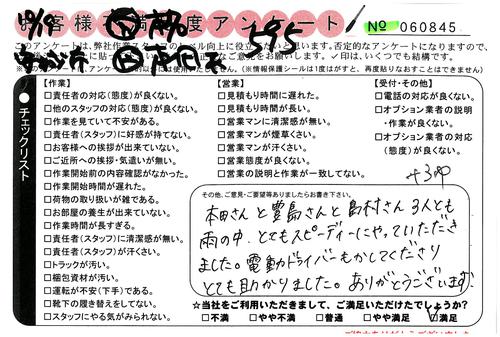 お客様不満度アンケート
№ 060845
595
チェックリスト
【作業】
□責任者の対応(態度)が良くない。
□他のスタッフの対応(態度)が良くない。
□作業を見ていて不安がある。
□責任者(スタッフ)に好感が持てない。
□お客様への挨拶が出来ていない。
□ご近所への挨拶・気遣いが無い。
□作業開始前の内容確認がなかった。
□作業開始時間が遅れた。
□荷物の取り扱いが雑である。
□お部屋の養生が出来ていない。
□作業時間が長すぎる。
□責任者(スタッフ)に清潔感が無い。
□責任者(スタッフ)が汗くさい。
□トラックが汚い。
□梱包資材が汚い。
□運転が不安(下手)である。
□靴下の履き替えをしてない。
□スタッフにやる気がみられない。
【営業】
□見積もり時間に遅れた。
□見積もり時間が長い。
□営業マンに清潔感が無い。
□営業マンが煙草くさい。
□営業マンが汗くさい。
□営業態度が良くない。
□営業の説明と作業が一致してない。
【受付・その他】
□電話の対応が良くない。
□オプション業者の説明
・作業が良くない。
□オプション業者の対応
(態度)が良くない。
その他、ご意見・ご要望等ありましたらお書き下さい。
本田さんと豊島さんと島村さん3人とも
雨の中、とてもスピーディーにやっていただき
ました。電動ドライバーもかしてくださり
とても助かりました。ありがとうございます。
☆当社をご利用いただきまして、ご満足いただけたでしょうか?
□不満 □やや不満 □普通 □やや満足 ☑満足